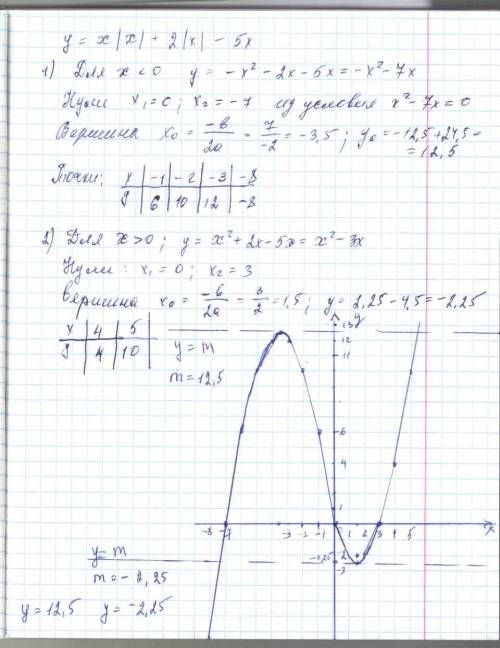 y = x|x| + 2|x| - 5x
1) Для x < 0 y = -x² - 2x - 5x = -x² - 7x
Нули x₁ = 0; x₂ = -7 из условия x² - 7x = 0
Вершина x₀ = -b/2a = 7/-2 = -3,5; y₀ = -12,5 + 24,5 =
= 12,5
Точки: x | -1 | -2 | -3 | -8
y | 6 | 10 | 12 | -8
2) Для x > 0; y = x² + 2x - 5x = x² - 3x
Нули: x₁ = 0; x₂ = 3
вершина x₀ = -b/2a = 3/2 = 1,5; y = 2,25 - 4,5 = -2,25
x | 4 | 5
y | 4 | 10
y = m
m = 12,5
13 y
12
11
6
4
1
-8 -7 -3 -2 -1 1 2 3 4 5 x
-2,25 -2
-3
y = m
m = -2,25
y = 12,5 y = -2,25